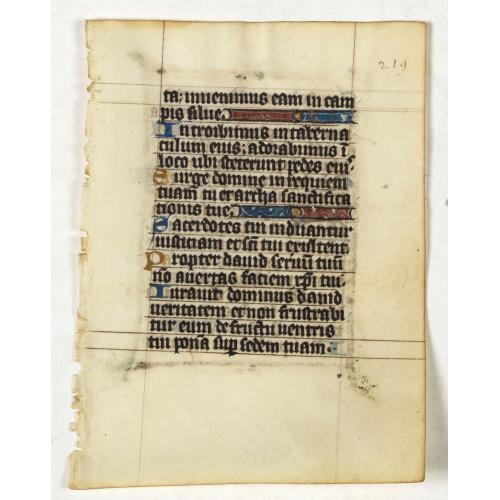 219
ta: inuenimus eam in cam
pis silue.
Introibimus in taberna
culum eius: adorabimus ī
loco ubi steterunt pedes eiꝰ
Surge domine in requiem
tuam: tu et archa sanctifica
tionis tue.
Sacerdotes tui induantur
iusticiam et sc̄i tui exsultent
Propter dauid seruū tuū
nō auertas faciem xp̄i tui.
Iurauit dominus dauid
ueritatem et non frustrabi
tur eum de fructu uentris
tui ponā sup sedem tuam.